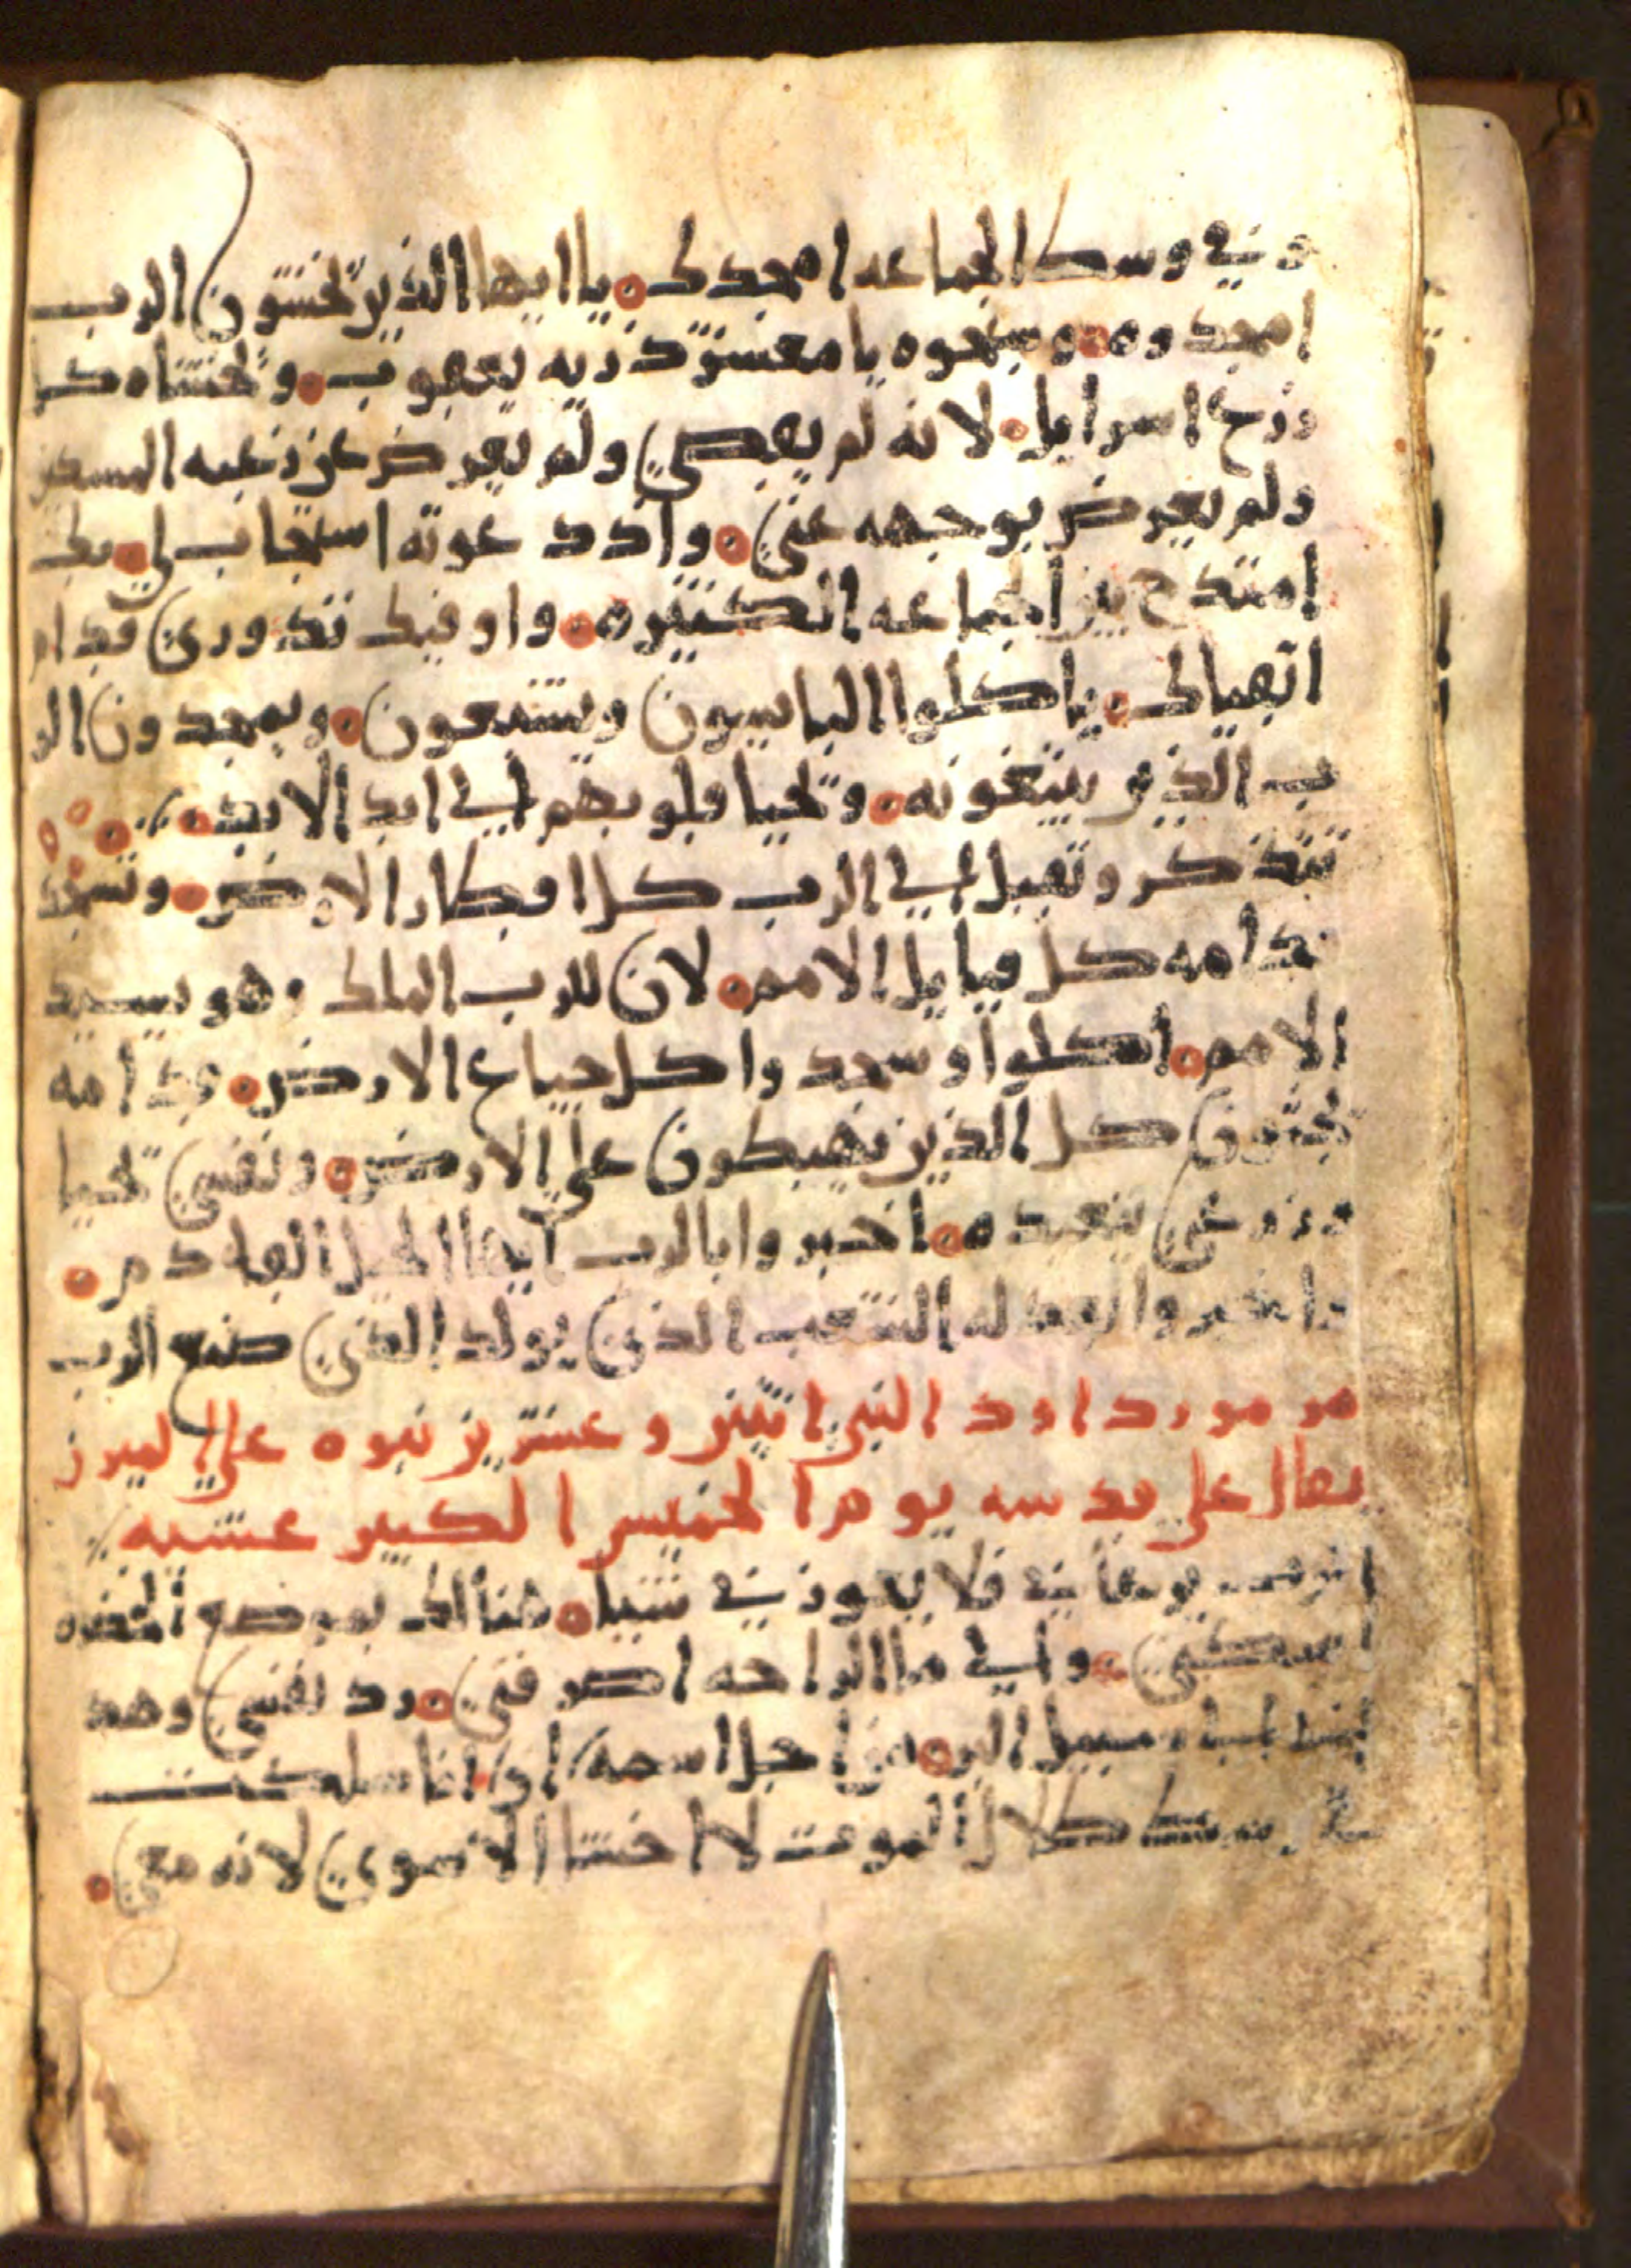 وفي وسط الجماعه امجدك ۝ يا ايها الذين تخشون الرب
امجدوه ۝ وسبحوه يا معشر ذريه يعقوب ۝ وتخشاه كل
زرع اسرايل ۝ لانه لم يعصي ولم يعرض عن رغبه المسكين
ولم يعرض بوجهه عني ۝ واذ دعوته استجاب لي ۝ بك
امتدح بين الجماعه الكثيره ۝ واوفيك نذوري قدام
اتقياك ۝ ياكلوا البايسون ويشبعون ۝ ويمجدون الر
ب الذين يبتغونه ۝ وتحيا قلوبهم الي ابد الابد ۝
تتذكر وتقبل الي الرب كل اقطار الارض ۝ وتسجد
قدامه كل قبايل الامم ۝ لان للرب الملك وهو يسيد
الامم ۝ اكلوا وسجدوا كل جياع الارض ۝ قدامه
يجثون كل الذين يهبطون علي الارض ۝ ونفسي تحيا
وزرعي يتعبد ه ۝ اخبروا بالرب ايها الجيل القادم ۝
واخبروا بعدله الشعب الذي يولد الذي صنع الرب
مزمور داود النبي اثنين وعشرين نبوه علي الميرن
يقال علي قدسه يوم الخميس الكبير عشيه
الرب يرعاني فلا يعوزني شيا ۝ هناك بموضع الخضره
اسكنني ۝ والي ما الراحه اصرفني ۝ رد نفسي وهد
اني سبيل البر ۝ من اجل اسمه ۝ اي انا سلكت
في وسط ظلال الموت لا اخشا الاسوي لانه معي ۝